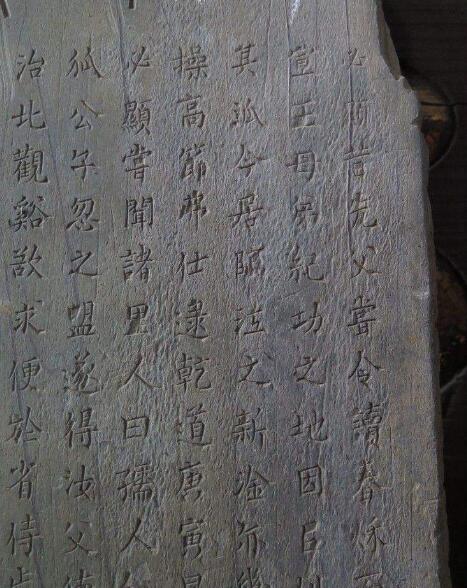 必昔先父嘗令讀春秋
宣王母弟紀功之地因
其派今居臨江之新淦
操高節弗仕逮乾道庚寅
必顯嘗聞諸里人曰孺人
狐公子忽之盟遂得汝父
治北觀谿欲求便於省侍